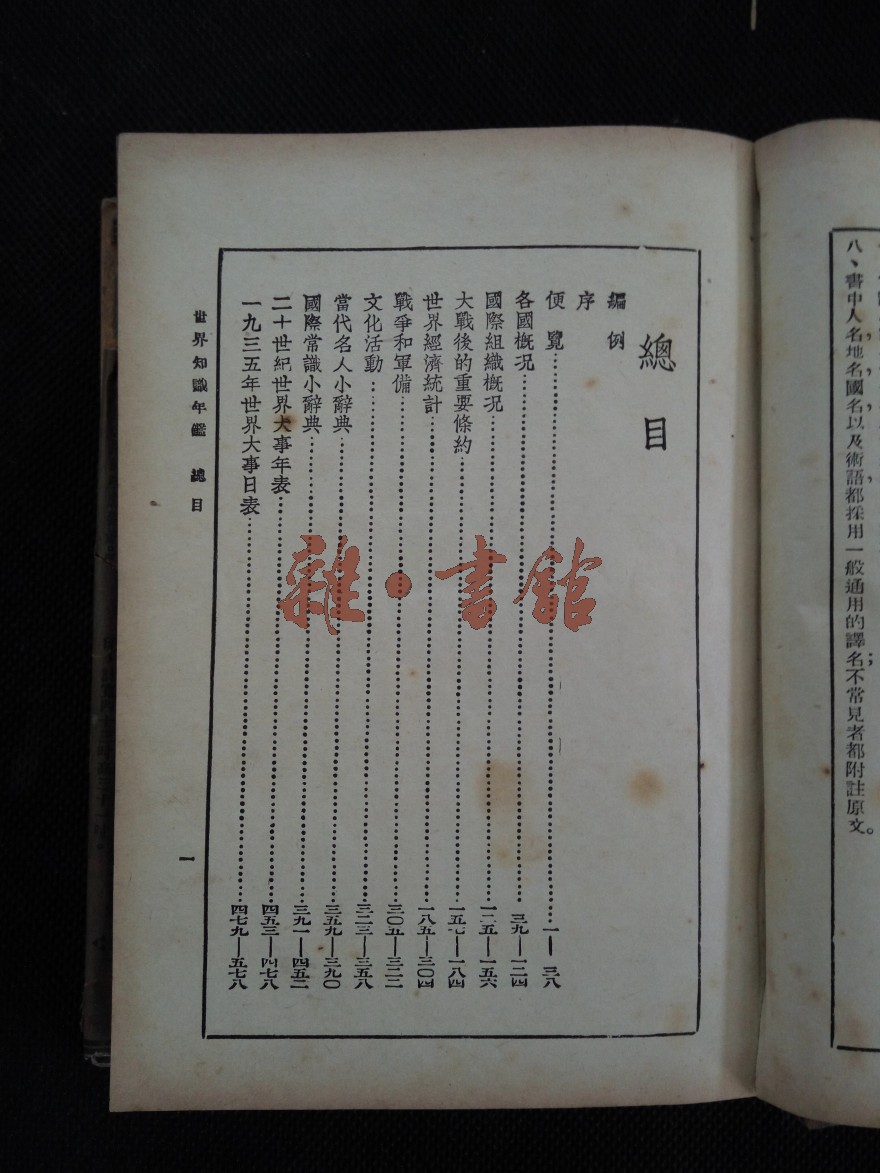 八、書中人名地名國名以及術語都採用一般通用的譯名；不常見者都附註原文。
總目
編例
序
便覽……一—三八
各國概況……三九—一二四
國際組織概況……一二五—一五六
大戰後的重要條約……一五七—一八四
世界經濟統計……一八五—三〇四
戰爭和軍備……三〇五—三二二
文化活動……三二三—三五八
當代名人小辭典……三五九—三九〇
國際常識小辭典……三九一—四五二
二十世紀世界大事年表……四五三—四七八
一九三五年世界大事日表……四七九—五七八
世界知識年鑑 總目
一
雜·書館